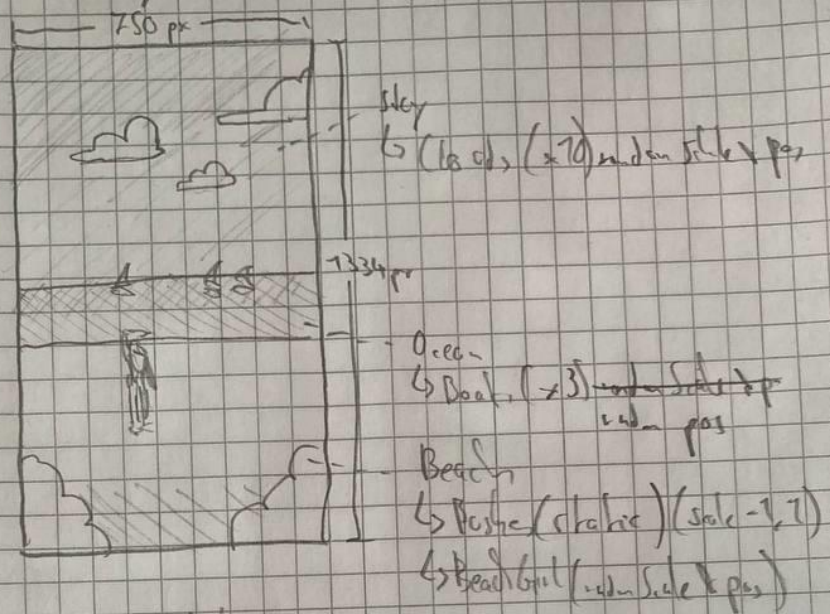 750 px
Sky
↳ Clouds (x10) random Scale & pos
1334 px
Ocean
↳ Boats (x3) random Scale & p
random pos
Beach
↳ (static) (scale -1, 1)
↳ Beach Girl (random Scale & pos)